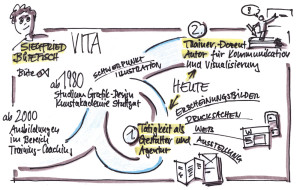 SIEGFRIED
BÜTEFISCH
VITA
Büte
ab 1980
Studium Grafik-Design
Kunstakademie Stuttgart
SCHWERPUNKT
ILLUSTRATION
ab 2000
Ausbildungen
im Bereich
Training + Coaching
2. Trainer, Dozent,
Autor für Kommunikation
und Visualisierung
HEUTE
1. Tätigkeit als
Gestalter und
Agentur
ERSCHEINUNGSBILDER
DRUCKSACHEN
WEB
AUSSTELLUNG